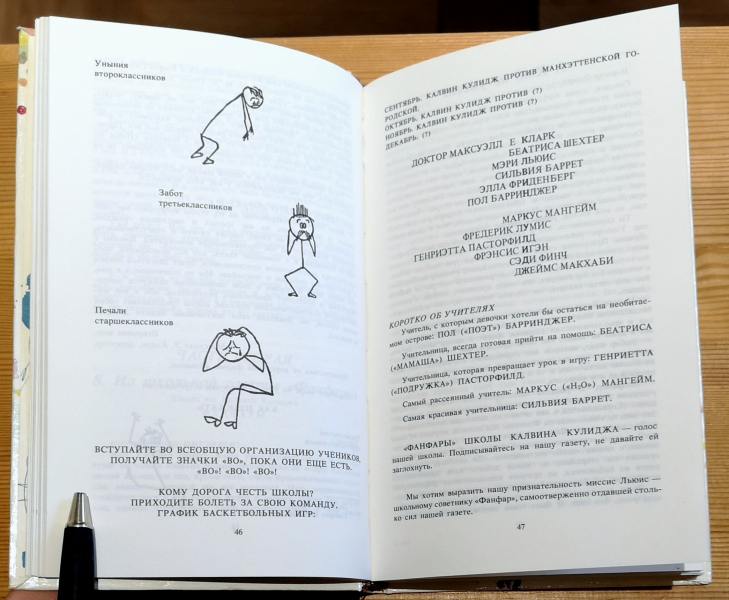 Уныния
второклассников
Забот
третьеклассников
Печали
старшеклассников
ВСТУПАЙТЕ ВО ВСЕОБЩУЮ ОРГАНИЗАЦИЮ УЧЕНИКОВ,
ПОЛУЧАЙТЕ ЗНАЧКИ «ВО», ПОКА ОНИ ЕЩЕ ЕСТЬ.
«ВО»! «ВО»! «ВО»!
КОМУ ДОРОГА ЧЕСТЬ ШКОЛЫ?
ПРИХОДИТЕ БОЛЕТЬ ЗА СВОЮ КОМАНДУ.
ГРАФИК БАСКЕТБОЛЬНЫХ ИГР:
46
СЕНТЯБРЬ. КАЛВИН КУЛИДЖ ПРОТИВ МАНХЭТТЕНСКОЙ ГО-
РОДСКОЙ.
ОКТЯБРЬ. КАЛВИН КУЛИДЖ ПРОТИВ (?)
НОЯБРЬ. КАЛВИН КУЛИДЖ ПРОТИВ (?)
ДЕКАБРЬ. (?)
ДОКТОР МАКСУЭЛЛ Е КЛАРК
БЕАТРИСА ШЕХТЕР
МЭРИ ЛЬЮИС
СИЛЬВИЯ БАРРЕТ
ЭЛЛА ФРИДЕНБЕРГ
ПОЛ БАРРИНДЖЕР
МАРКУС МАНГЕЙМ
ФРЕДЕРИК ЛУМИС
ГЕНРИЕТТА ПАСТОРФИЛД
ФРЭНСИС ИГЭН
СЭДИ ФИНЧ
ДЖЕЙМС МАКХАБИ
КОРОТКО ОБ УЧИТЕЛЯХ
Учитель, с которым девочки хотели бы остаться на необитае-
мом острове: ПОЛ («ПОЭТ») БАРРИНДЖЕР.
Учительница, всегда готовая прийти на помощь: БЕАТРИСА
(«МАМАША») ШЕХТЕР.
Учительница, которая превращает урок в игру: ГЕНРИЕТТА
(«ПОДРУЖКА») ПАСТОРФИЛД.
Самый рассеянный учитель: МАРКУС («H₂O») МАНГЕЙМ.
Самая красивая учительница: СИЛЬВИЯ БАРРЕТ.
«ФАНФАРЫ» ШКОЛЫ КАЛВИНА КУЛИДЖА — голос
нашей школы. Подписывайтесь на нашу газету, не давайте ей
заглохнуть.
Мы хотим выразить нашу признательность миссис Льюис —
школьному советнику «Фанфар», самоотверженно отдавшей столь-
ко сил нашей газете.
47